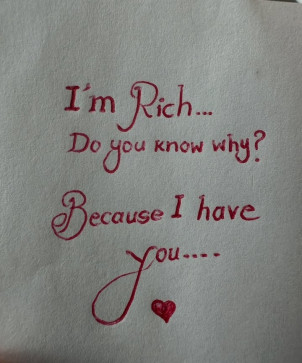 I'm Rich...
Do you know why?
Because I have
you....